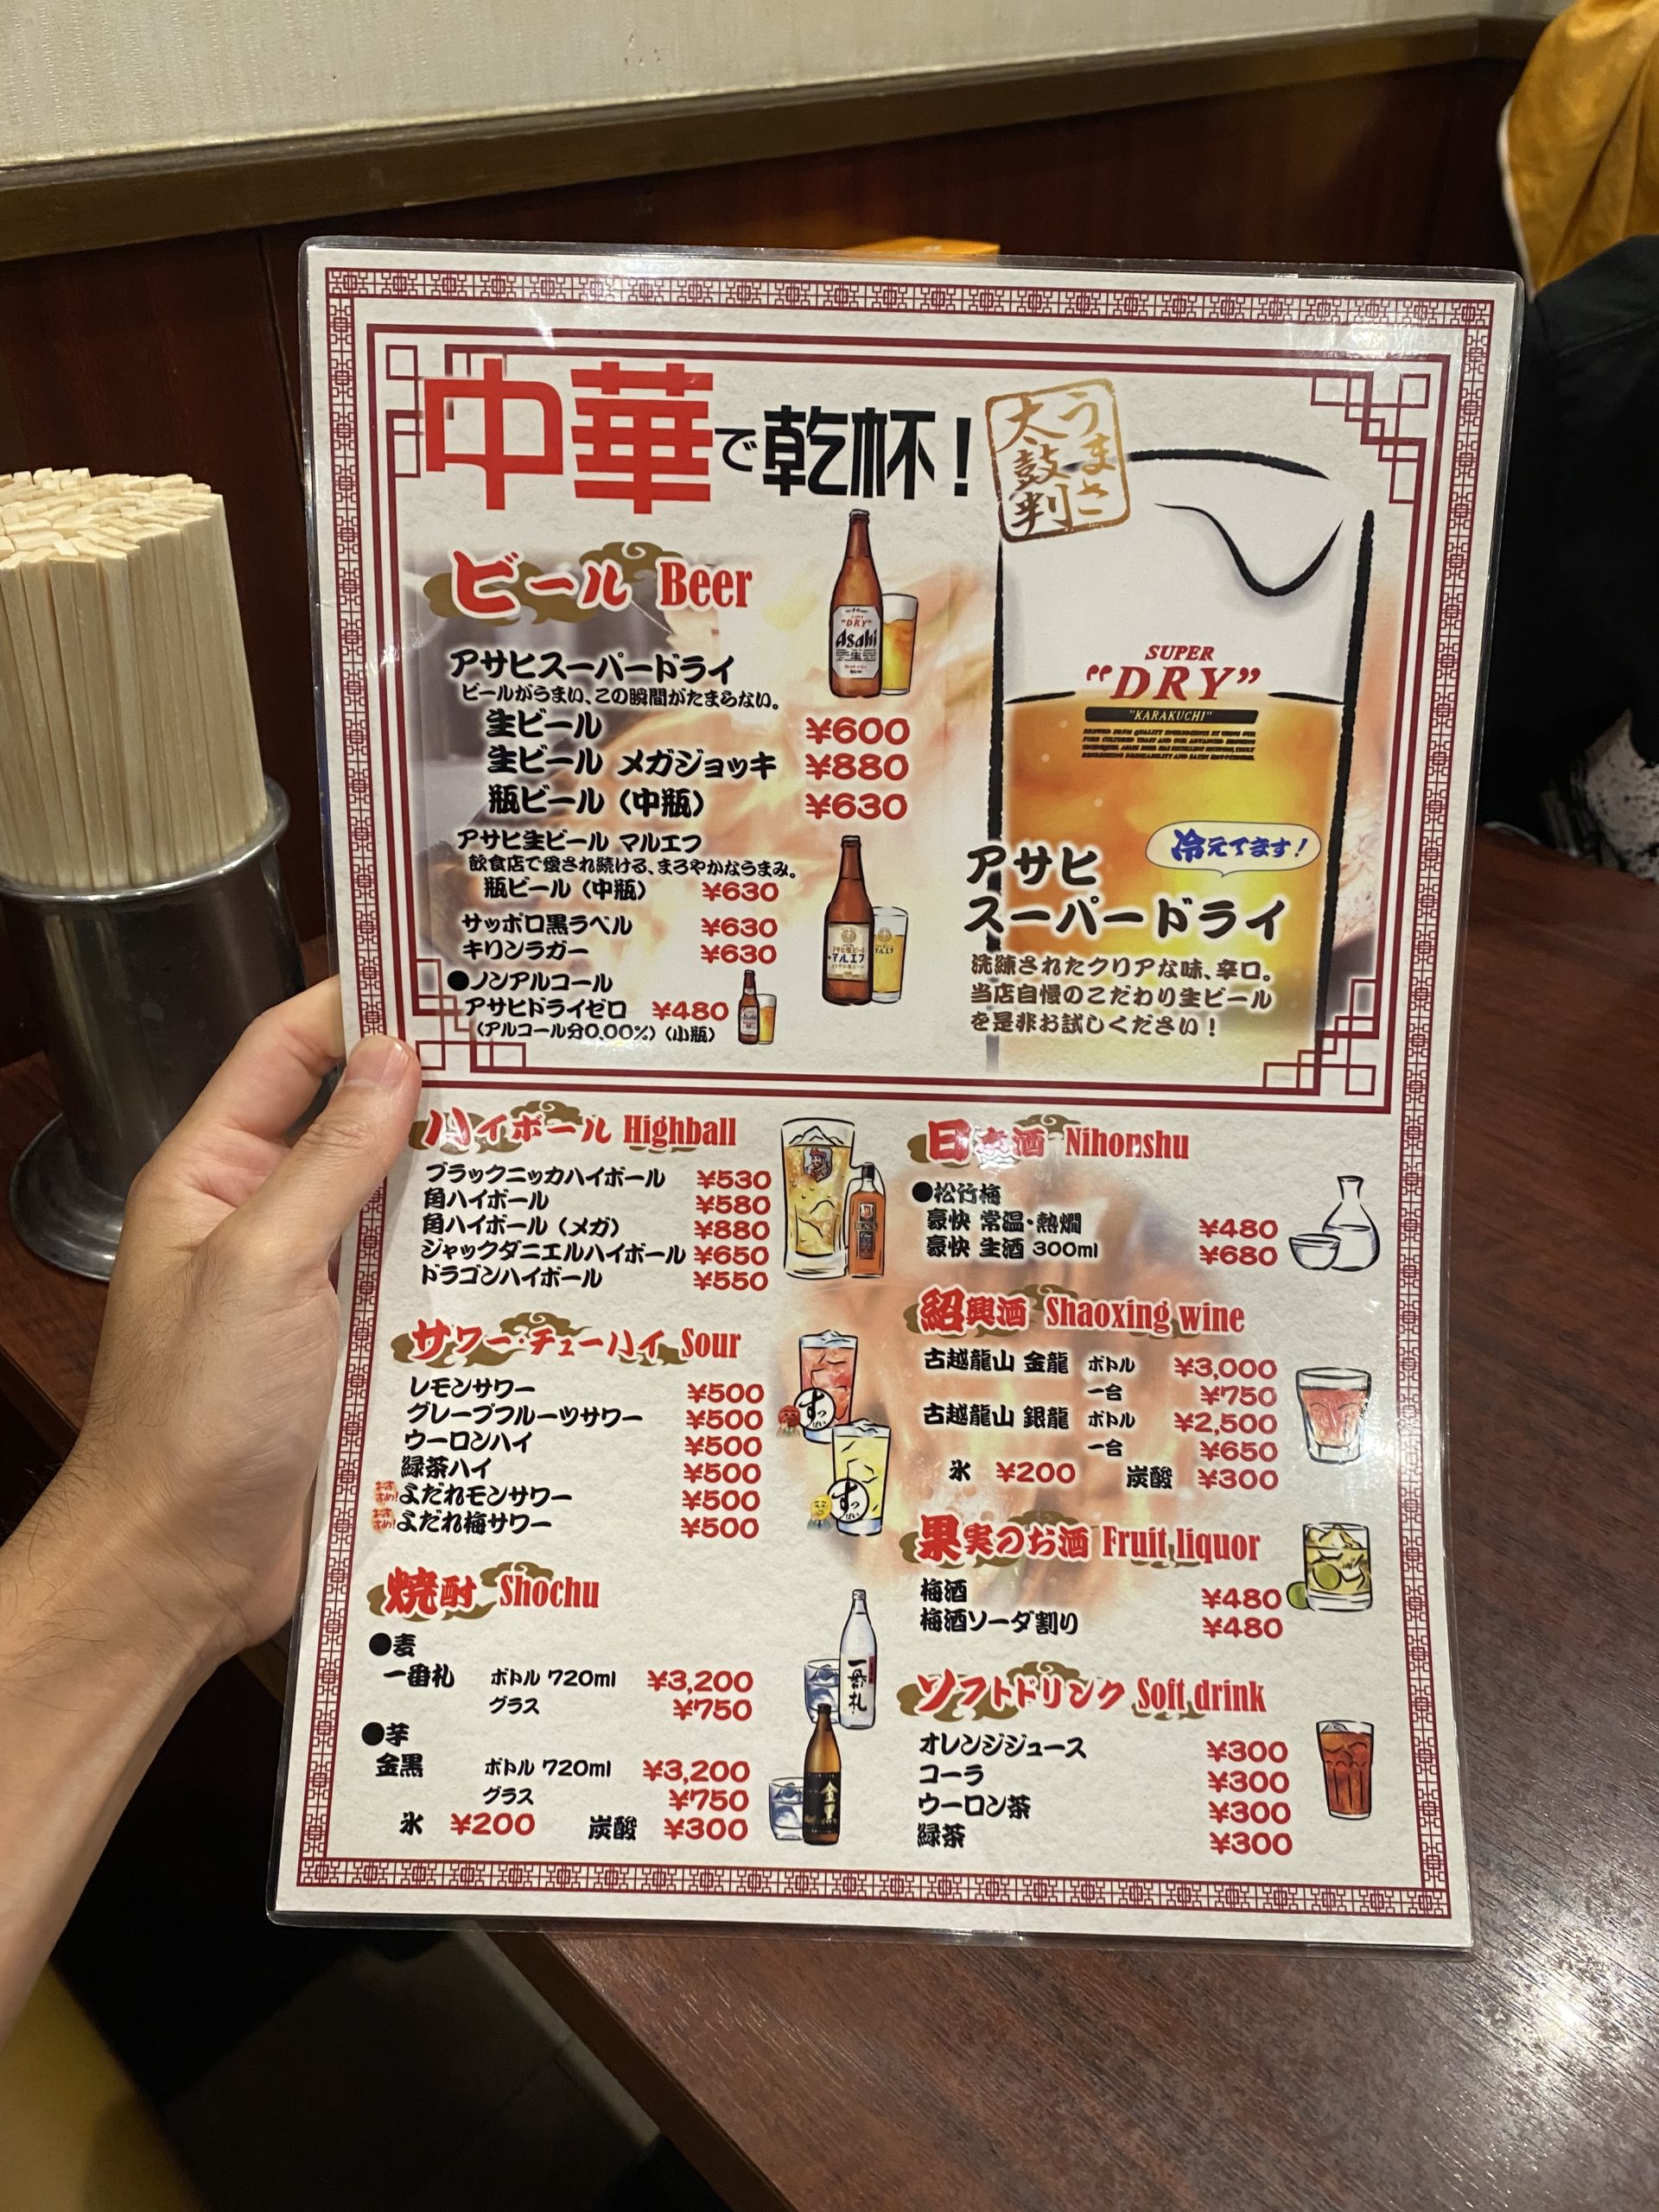 中華で乾杯!
うまさ
太鼓判
ビール Beer
アサヒスーパードライ
ビールがうまい、この瞬間がたまらない。
生ビール ¥600
生ビール メガジョッキ ¥880
瓶ビール(中瓶) ¥630
アサヒ生ビール マルエフ
飲食店で愛され続ける、まろやかなうまみ。
瓶ビール(中瓶) ¥630
サッポロ黒ラベル ¥630
キリンラガー ¥630
●ノンアルコール
アサヒドライゼロ ¥480
(アルコール分0.00%)(小瓶)
"DRY"
Asahi
マルエフ
SUPER
"DRY"
"KARAKUCHI"
冷えてます!
アサヒ
スーパードライ
洗練されたクリアな味、辛口。
当店自慢のこだわり生ビール
を是非お試しください!
ハイボール Highball
ブラックニッカハイボール ¥530
角ハイボール ¥580
角ハイボール(メガ) ¥880
ジャックダニエルハイボール ¥650
ドラゴンハイボール ¥550
サワー・チューハイ Sour
レモンサワー ¥500
グレープフルーツサワー ¥500
ウーロンハイ ¥500
緑茶ハイ ¥500
おすすめ! よだれモンサワー ¥500
おすすめ! よだれ梅サワー ¥500
すっぱい
すっぱい
焼酎 Shochu
●麦
一番札 ボトル 720ml ¥3,200
グラス ¥750
●芋
金黒 ボトル 720ml ¥3,200
グラス ¥750
氷 ¥200 炭酸 ¥300
一番札
金黒
日本酒 Nihonshu
●松竹梅
豪快 常温・熱燗 ¥480
豪快 生酒 300ml ¥680
紹興酒 Shaoxing wine
古越龍山 金龍 ボトル ¥3,000
一合 ¥750
古越龍山 銀龍 ボトル ¥2,500
一合 ¥650
氷 ¥200 炭酸 ¥300
果実のお酒 Fruit liquor
梅酒 ¥480
梅酒ソーダ割り ¥480
ソフトドリンク Soft drink
オレンジジュース ¥300
コーラ ¥300
ウーロン茶 ¥300
緑茶 ¥300